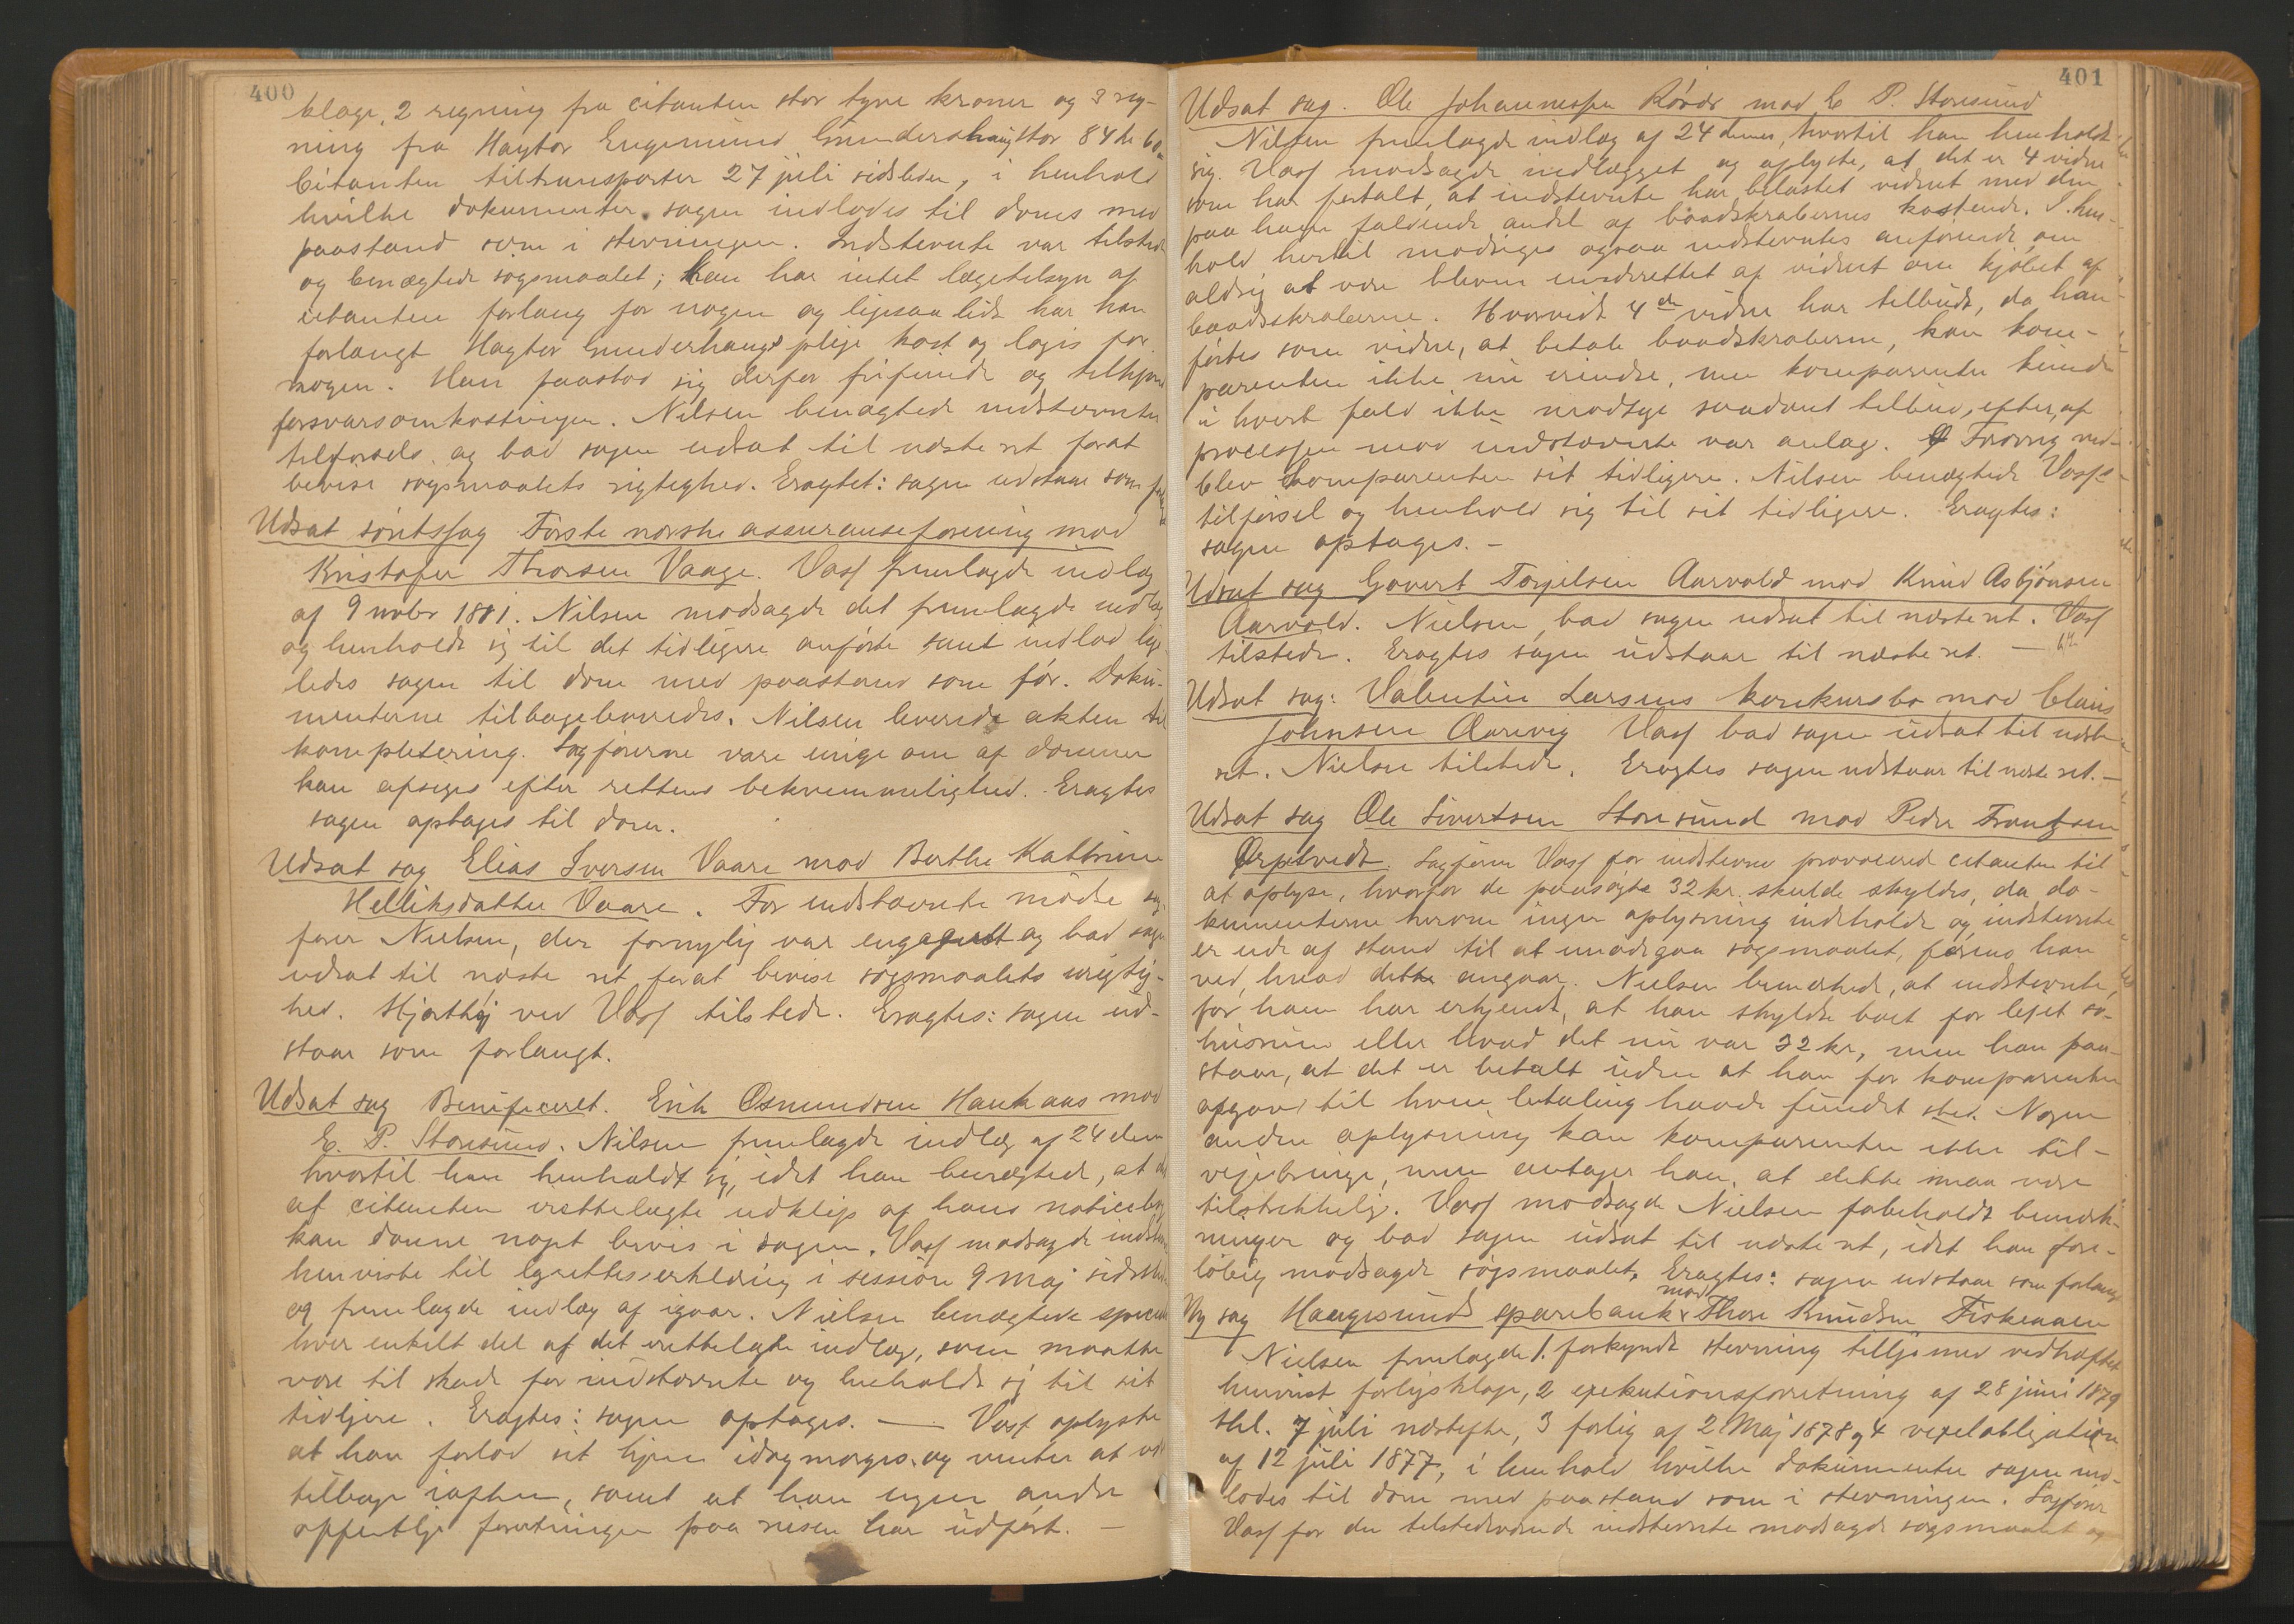 400
klage, 2 regning fra citanten stor tyve kroner og 3 reg-
ning fra Hagtor Engemund Gundershaug stor 84 kr 60
Citanten tiltransporter 27 juli sidsleden, i henhold
hvilke dokumenter sagen indlodes til doms med
paastand som i stevningen. Indstevnte var tilstede
og benægtede søgsmaalet; han har intet lægetilsyn af
citanten forlang for nogen og ligesaa lidt har han
forlangt Hagtor Gunderhaugs pleje kost og logis for
nogen. Han paastod sig derfor frifunden og tilkjendt
forsvarsomkostninger. Nilsen benægtede indstevntes
tilførsels og bad sagen udsat til næste ret forat
bevise søgsmaalets rigtighed. Eragtet: sagen udstaar som
Udsat søretssag Første norske assuranseforening mod
Kristofer Thorsen Vaage. Vasf fremlagde indlæg
af 9 novbr 1881. Nilsen modsagde det fremlagde indlæg
og henholdt sig til det tidligere anførte samt indlod lige
ledes sagen til dom med paastand som før. Doku-
menterne tilbageleveredes. Nilsen leverede akten til
komplettering. Sagførerne vare enige om at dommen
kan afsiges efter rettens bekvemmelighed. Eragtes
sagen optages til dom.
Udsat sag Elias Iversen Vaare mod Berthe Kathrine
Helliksdatter Vaare. For indstævnte mødte sag-
fører Nielsen, der fornylig var engageret og bad sagen
udsat til næste ret forat bevise søgsmaalets urigtig-
hed. Hjorthøj ved Vasf tilstede. Eragtes: sagen ud-
staar som forlangt.
Udsat sag Benificeret. Erik Osmundsen Haukaas mod
E. P. Storesund. Nilsen fremlagde indlæg af 24 dennes
hvortil han henholdt sig, idet han benægtede, at de
af citanten irettelagte udklip af hans noticebog
kan danne noget bevis i sagen. Vasf modsagde indstevnte
henviste til lagrettes erklæring i session 9 maj sidstl
og fremlagde indlæg af igaar. Nielsen benægtede specielt
hver enkelt del af det irettelagte indlæg, som maatte
være til skade for indstævnte og henholdt sig til sit
tidligere. Eragtes: sagen optages. — Vasf oplyste
at han forlod sit hjem idag morges og venter at være
tilbage iaften, samt at han ingen andre
offentlige forretninger paa reisen har udført. —
401
Udsat sag. Ole Johannessen Røvær mod E P. Storesund
Nilsen fremlagde indlæg af 24 dennes, hvortil han henholdt
sig. Vasf modsagde indlægget og oplyste, at det er 4 vidne
som har fortalt, at indstevnte har belastet vidnet med den
paa ham faldende andel af baadskrabernes kostende. I hen-
hold hertil modsiges ogsaa indstevntes anførende om
aldrig at være bleven underrettet af vidnet om kjøbet af
baadskraberne. Hvorvidt 4de vidne har tilbudt, da han
førtes som vidne, at betale baadskraberne, kan kom-
parenten ikke nu erindre, men komparenten kunde
i hvert fald ikke modtage saadant tilbud, efter, at
processen mod indstævnte var anlag. Forøvrig ved-
blev komparenten sit tidligere. Nilsen benægtede Vasfs
tilførsel og henhold sig til sit tidligere. Eragtes:
sagen optages. —
Udsat sag Govert Torjelsen Aarvold mod Knud Asbjønsen
Aarvold. Nielsen bad sagen udsat til næste ret. Vasf
tilstede. Eragtes sagen udstaar til næste ret. —
Udsat sag: Valentin Larsens konkursbo mod Claus
Johnsen Aarevig Vasf bad sagen udsat til næste
ret. Nielsen tilstede. Eragtes sagen udstaar til næste ret. —
Udsat sag Ole Sivertsen Storesund mod Peder Frantzen
Ørpetvedt. Sagfører Vasf for indstevnte provocered citanten til
at oplyse, hvorfor de paasøgte 32 kr. skulde skyldes, da do-
kumenterne herom ingen oplysning indeholdt og indstevnte
er ude af stand til at imødegaa søgsmaalet, førend han
ved, hvad dette angaar. Nielsen bemerkede, at indstevnte,
for ham har erkjendt, at han skyldte boet for lejet sø-
husrum eller hvad det nu var 32 kr, men han paa-
staar, at det er betalt uden at han for komparenten
opgav til hvem betaling havde fundet sted. Nogen
anden oplysning kan komparenten ikke til-
vejebringe, men antager han, at dette maa være
tilstrekkelig. Vasf modsagde Nielsen fabeholdt bemærk-
ninger og bad sagen udsat til næste ret, idet han fore-
løbig modsagde søgsmaalet. Eragtes: sagen udstaar som forlang
Ny sag Haugesunds sparebank mod Thore Knudsen Fiskeaaen
Nielsen fremlagde 1. forkyndt stevning tilligemed vedhæftet
henvist forligsklage, 2 exekutionsforretning af 28 juni 1879
thl. 7 juli næstefter, 3 forlig af 2 Maj 1878 og 4 vexelobligation
af 12 juli 1877, i henhold hvilke dokumenter sagen ind-
lodes til dom med paastand som i stevningen. Sagfører
Vasf for den tilstedeværende indstevnte modsagde søgsmaalet og